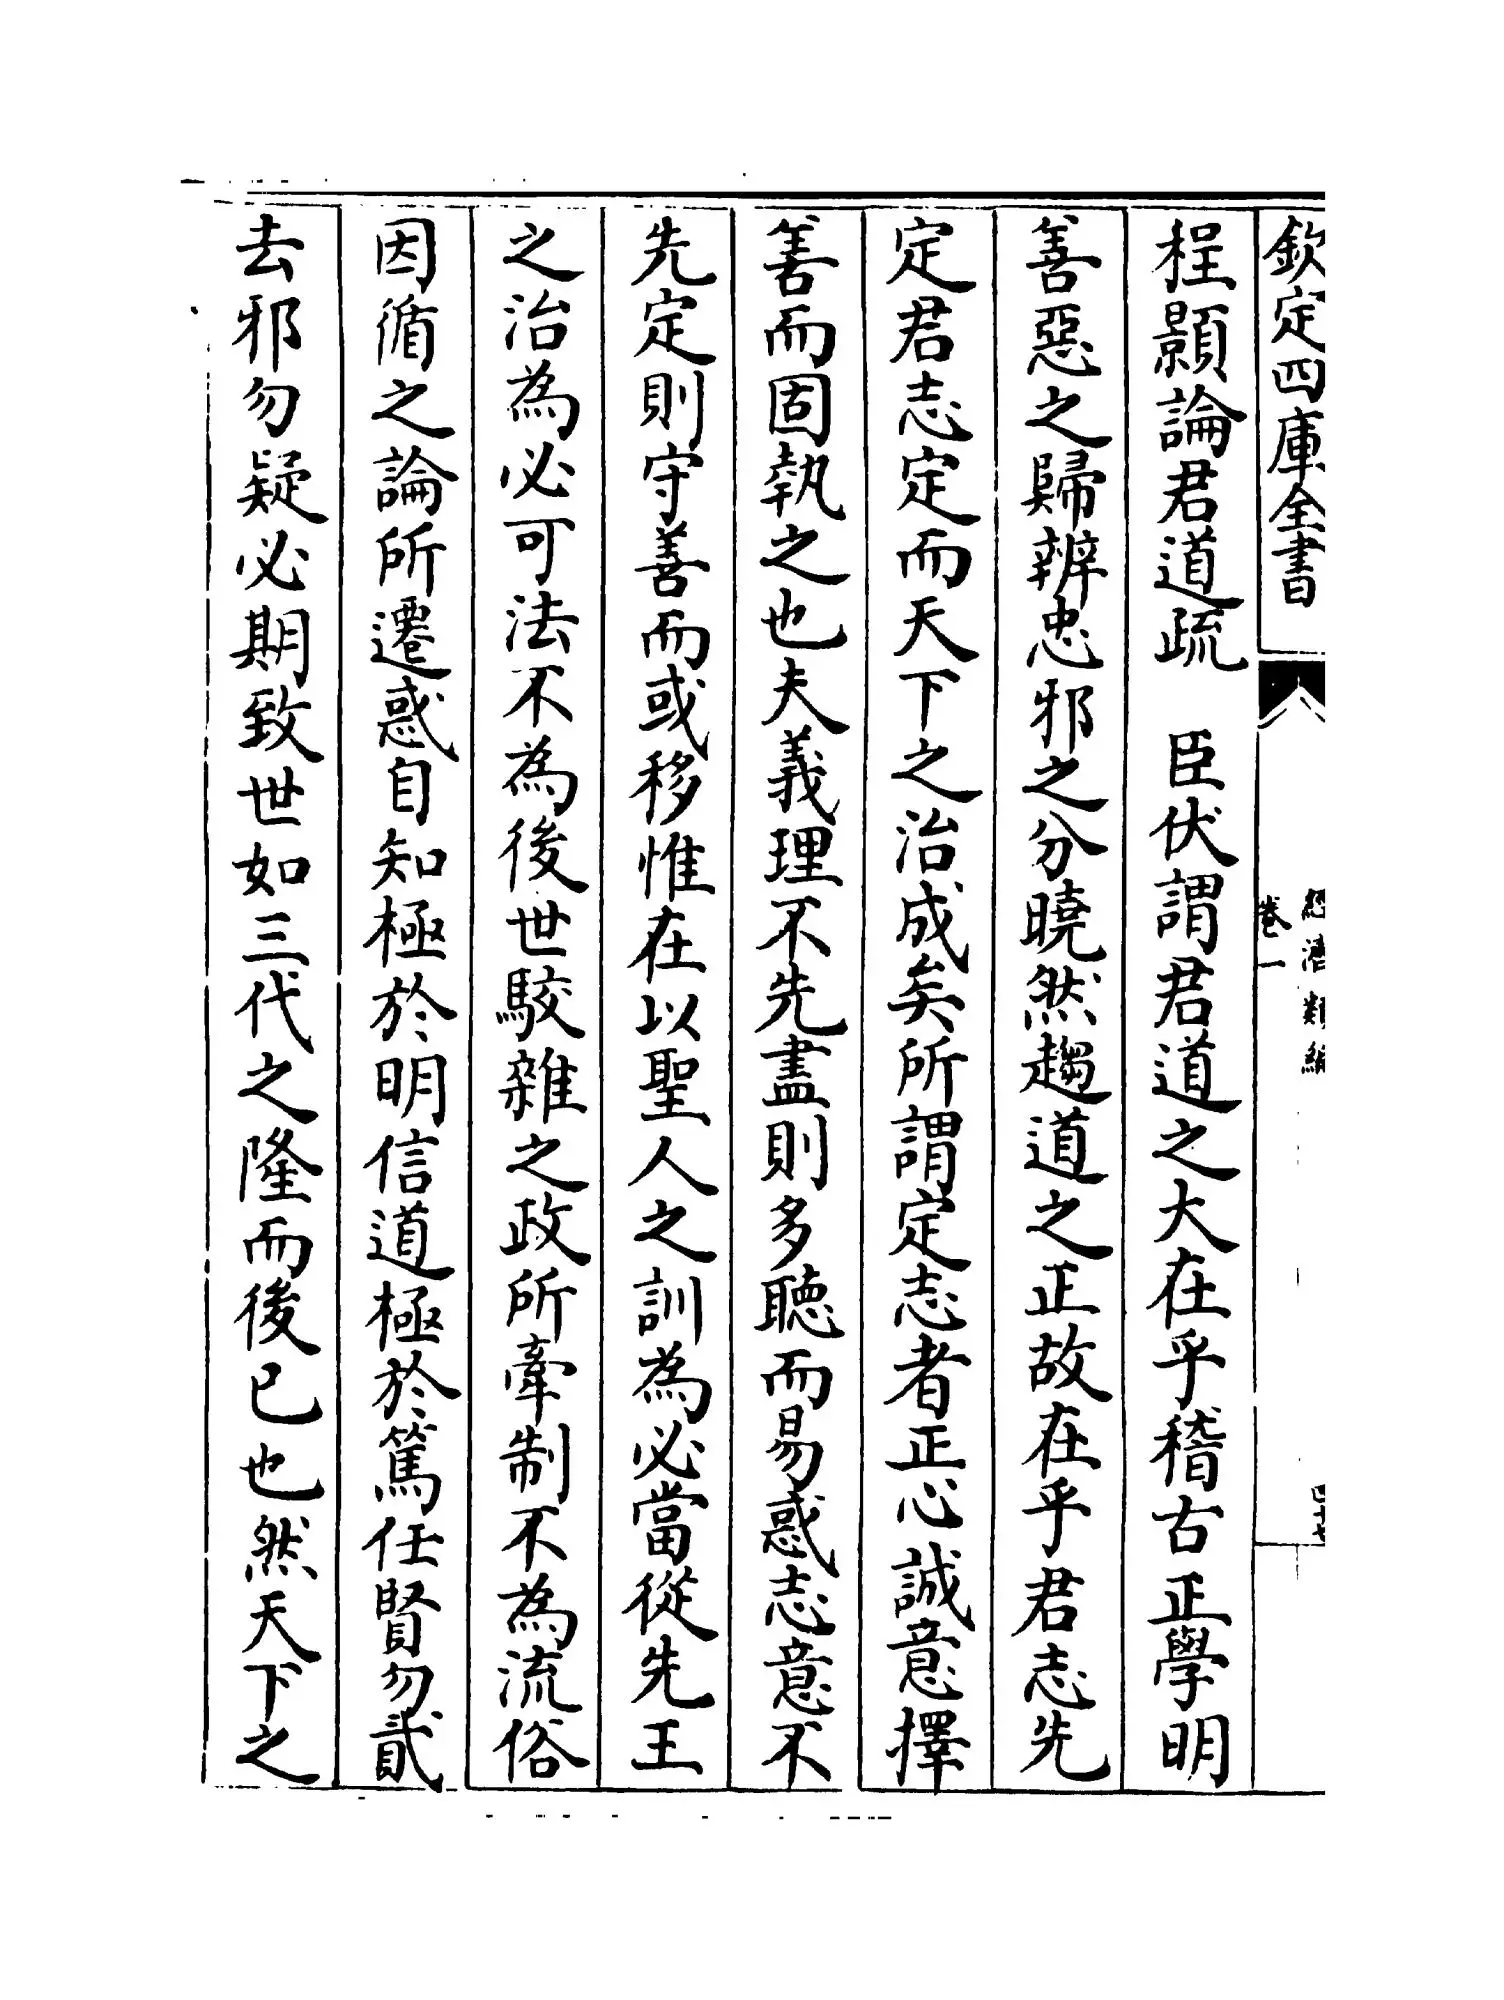 欽定四庫全書
經濟類編
卷一
四十七
程顥論君道疏　臣伏謂君道之大在乎稽古正學明
善惡之歸辨忠邪之分曉然趨道之正故在乎君志先
定君志定而天下之治成矣所謂定志者正心誠意擇
善而固執之也夫義理不先盡則多聽而易惑志意不
先定則守善而或移惟在以聖人之訓為必當從先王
之治為必可法不為後世駮雜之政所牽制不為流俗
因循之論所遷惑自知極於明信道極於篤任賢勿貳
去邪勿疑必期致世如三代之隆而後已也然天下之